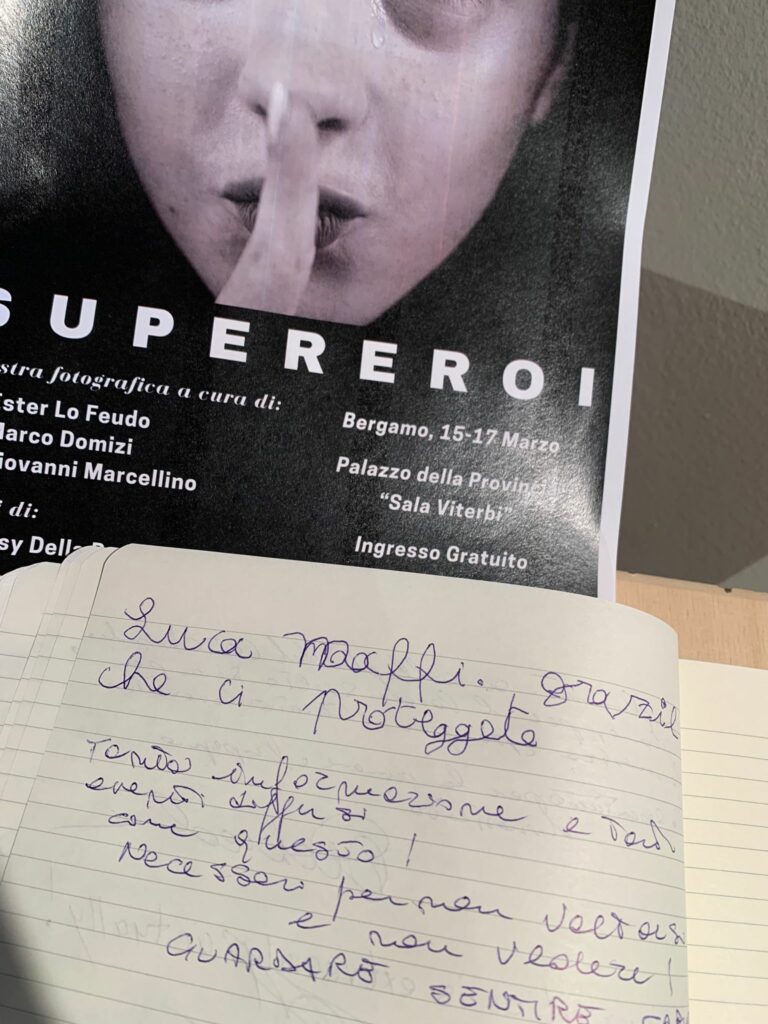 SUPEREROI
stra fotografica a cura di:
Ester Lo Feudo
Marco Domizi
iovanni Marcellino
i di:
sy Della
Bergamo, 15-17 Marzo
Palazzo della Provinci
“Sala Viterbi”
Ingresso Gratuito
Luca Maffi. grazie
che ci proteggete
Tanta informazione e tant
eventi diffusi
come questo!
Necessari per non voltarsi
e non vedere!
GUARDARE SENTIRE